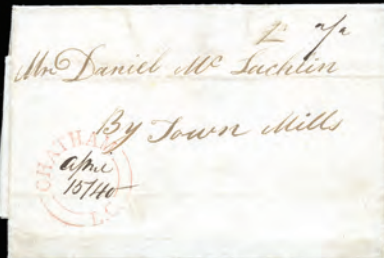 Mr Daniel Mc Lachlin
By Town Mills
CHATHAM
april
15/40
L.C.